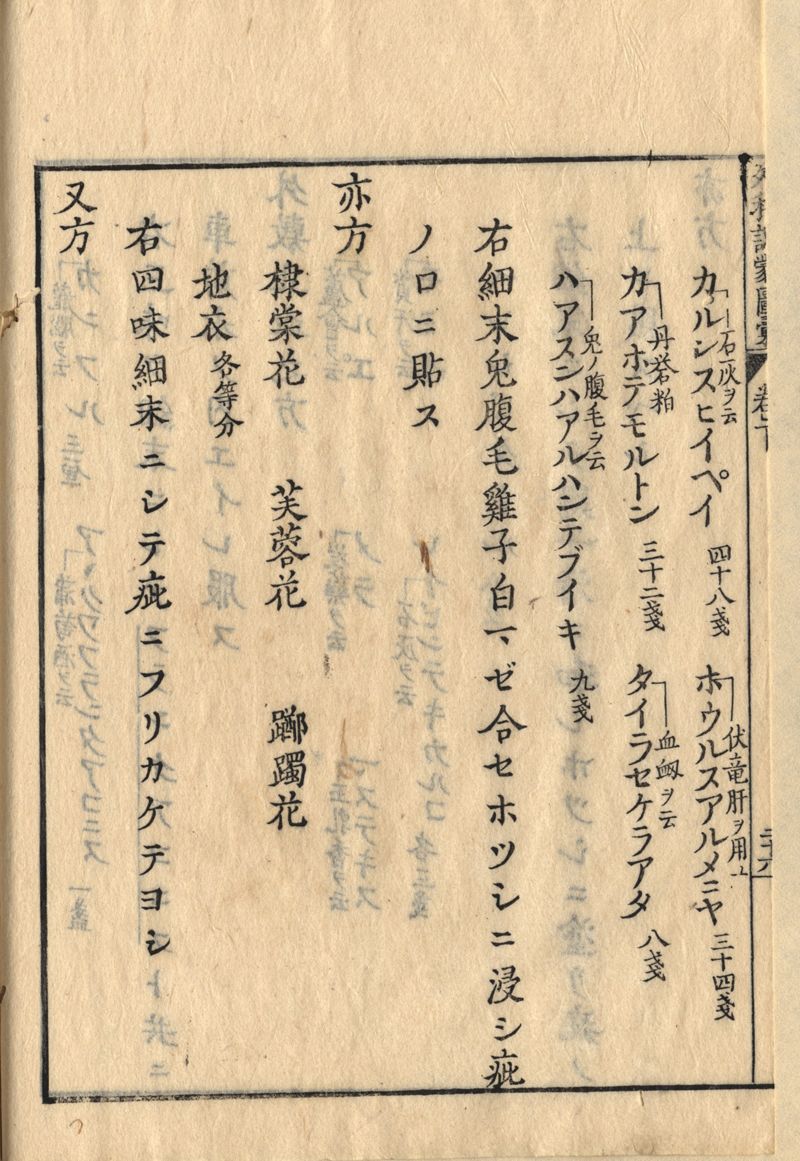 外科訓蒙圖彙 卷下
カルシスヒイペイ 石灰ヲ云 四十八戔 ホウルスアルメニヤ 伏竜肝ヲ用ユ 三十四戔
カアホテモルトン 丹礬粕 三十二戔 タイラセケラアタ 血衂ヲ云 八戔
ハアスンハアルハンテブイキ 兔ノ腹毛ヲ云 九戔
右細末兔腹毛雞子白マゼ合セホツシニ浸シ疵
ノロニ貼ス
亦方
棣棠花 芙蓉花 躑躅花
地衣 各等分
右四味細末ニシテ疵ニフリカケテヨシ
又方